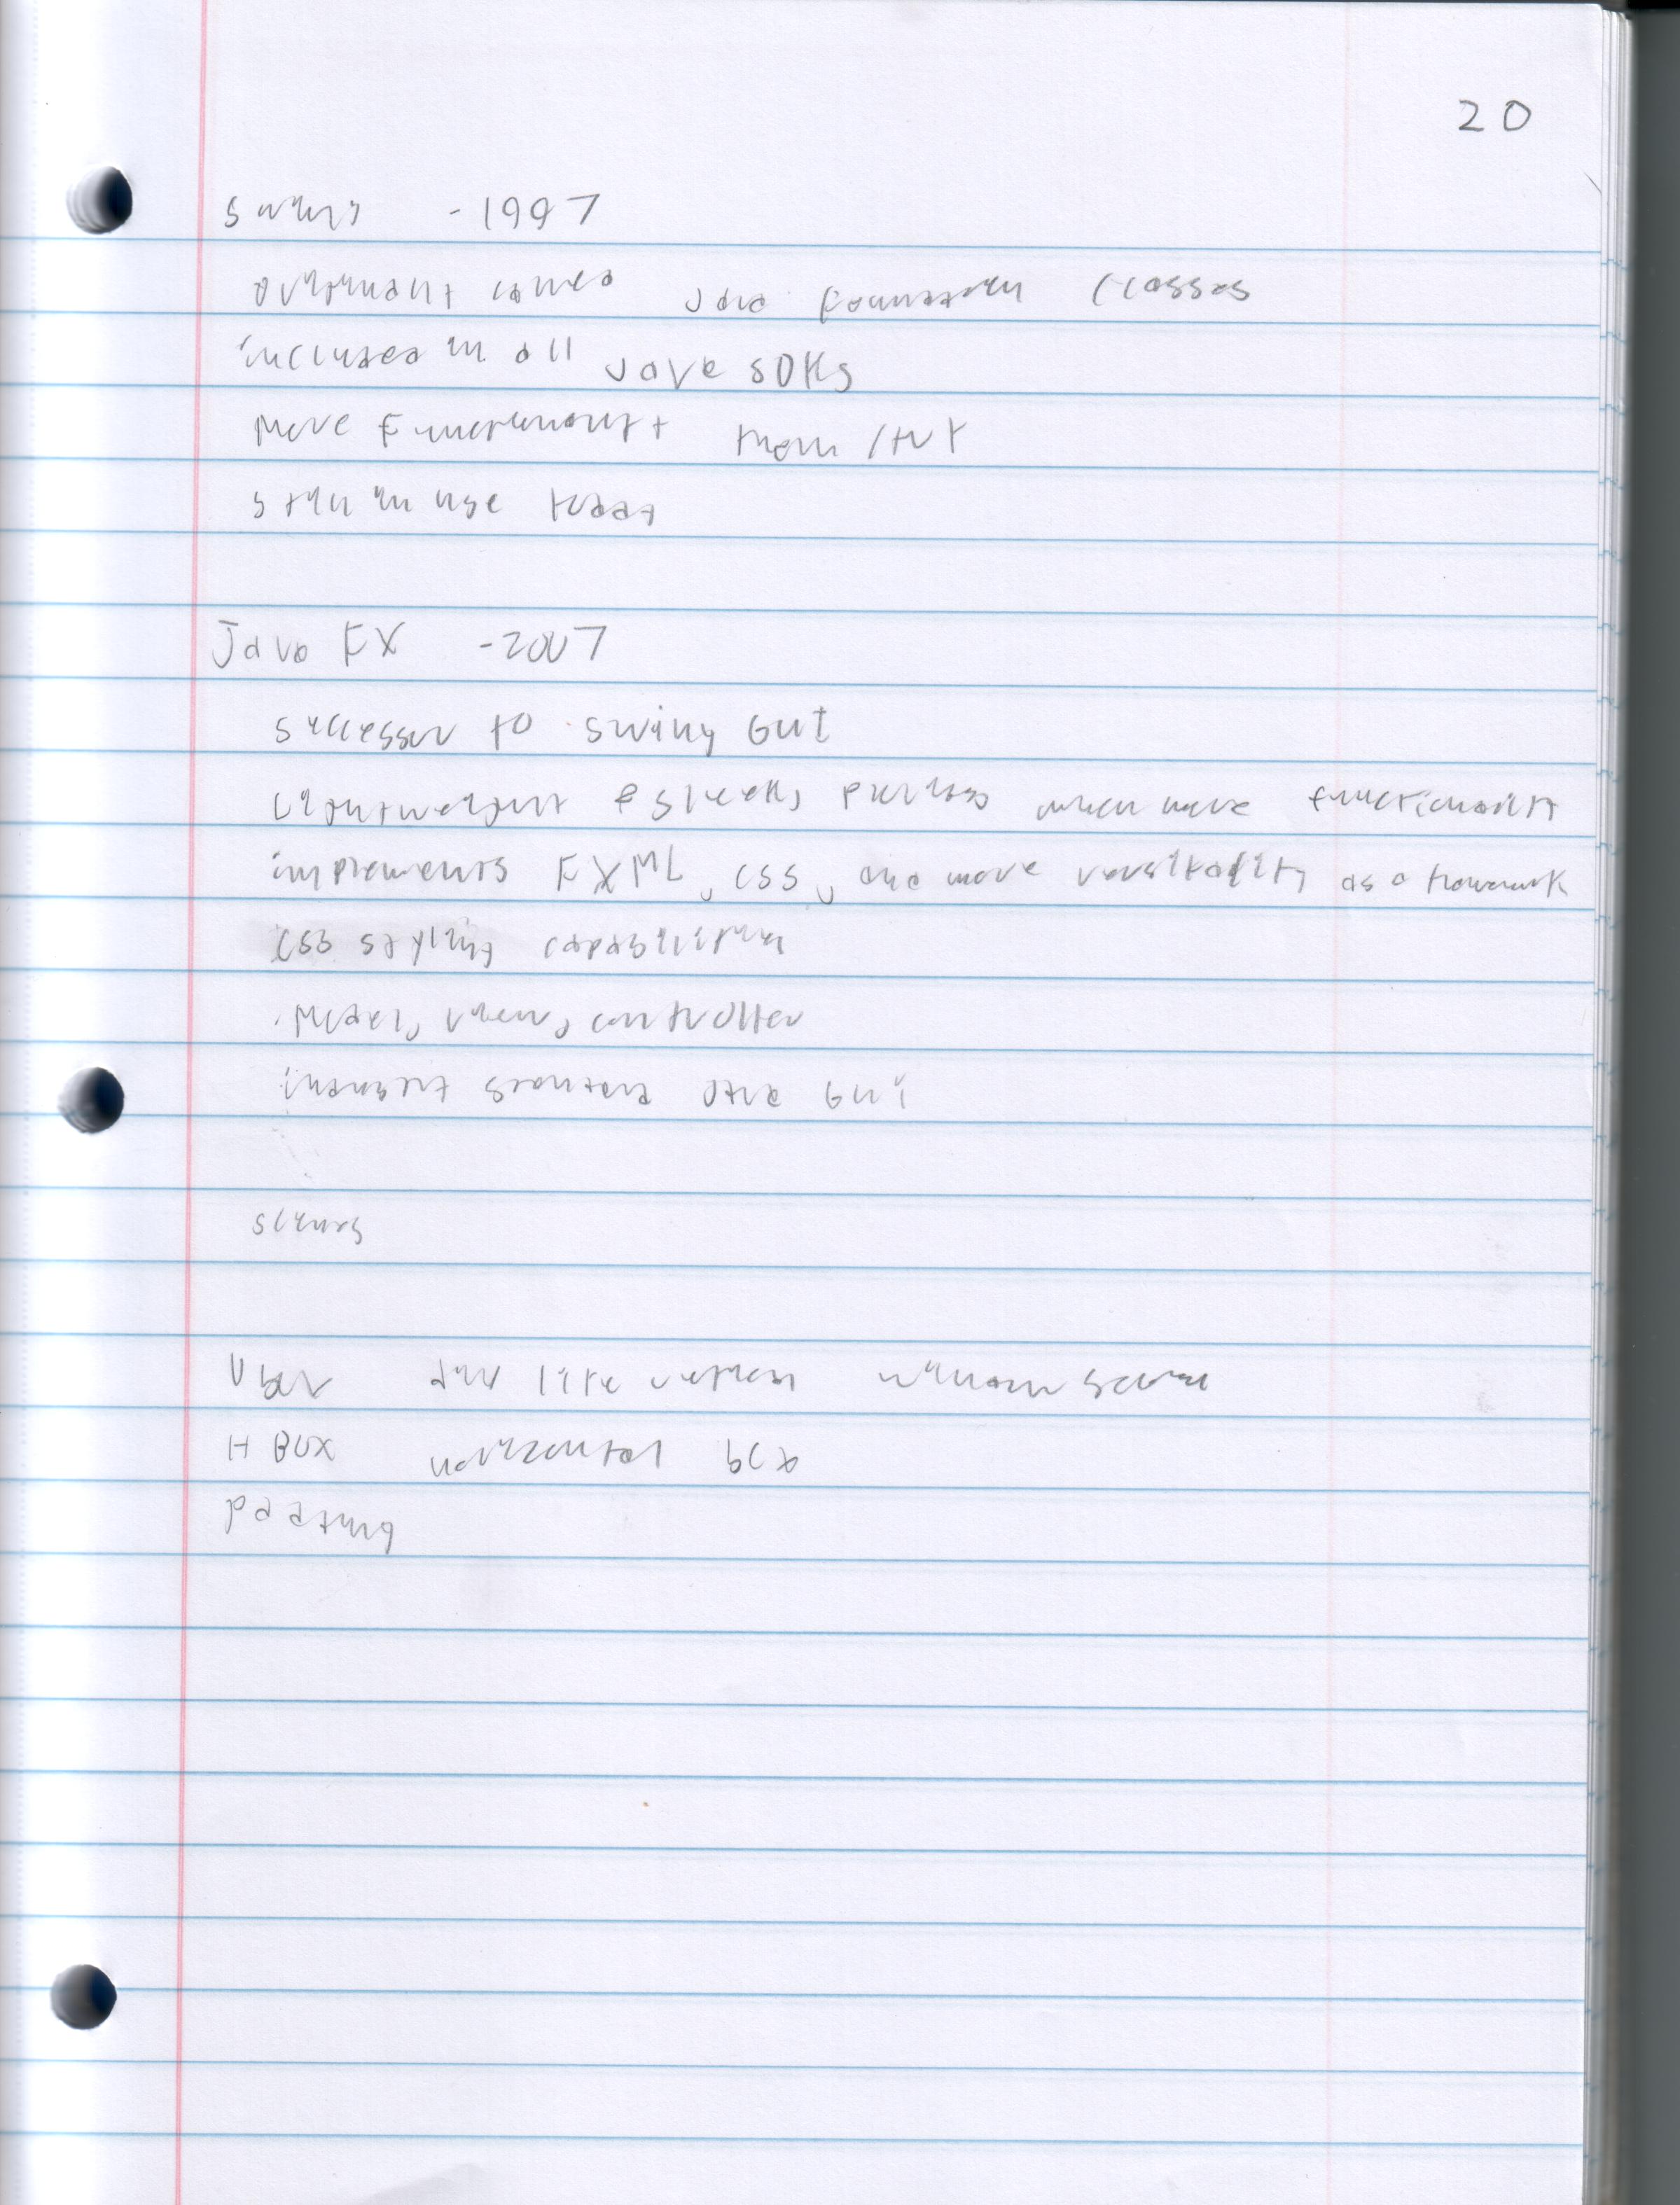 20
Swing -1997
originally called Java Foundation Classes
included in all Java SDKs
More functionality than AWT
still in use today
Java FX -2007
successor to swing GUI
Lightweight & sleek, more functionality
implements FXML, CSS, and more versitality as a framework
CSS styling capabilities
Model, view, controller
GUI
scenes
VBox
H BOX horizontal box
padding